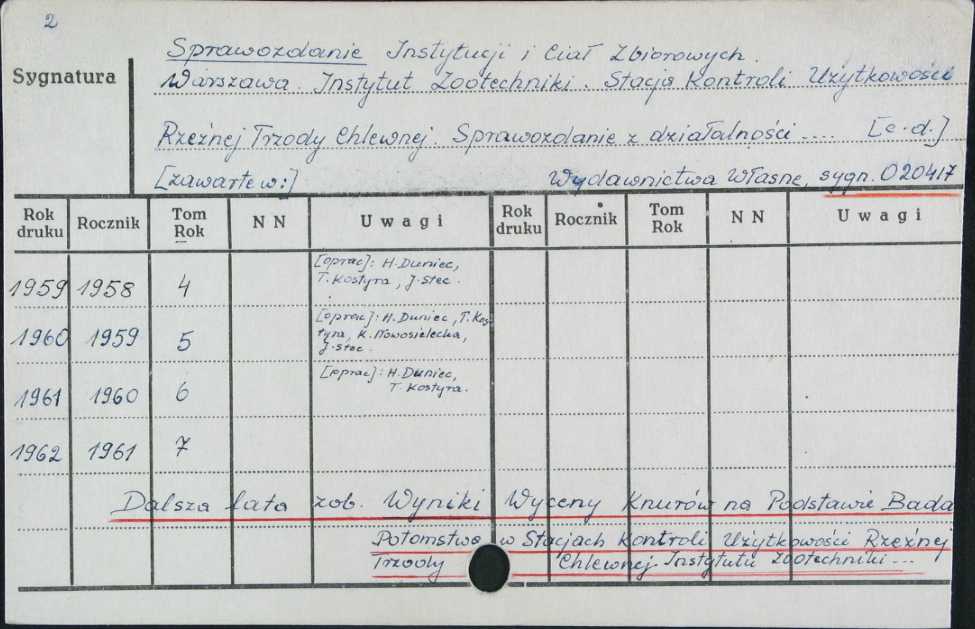 2
Sprawozdanie Instytucji i Ciał Zbiorowych.
Sygnatura
Warszawa. Instytut Zootechniki. Stacja Kontroli Użytkowości
Rzeźnej Trzody Chlewnej. Sprawozdanie z działalności .... [c.d.]
[zawarte w:] Wydawnictwa Własne, sygn. 020417
Rok druku Rocznik Tom Rok N N Uwagi Rok druku Rocznik Tom Rok N N Uwagi
1959 1958 4 [oprac]: H. Duniec,
T. Kostyra, J. Stec.
1960 1959 5 [oprac]: H. Duniec, T. Kos
tyra, K. Nowosielecka,
J. Stec.
1961 1960 6 [oprac]: H. Duniec,
T. Kostyra.
1962 1961 7
Dalsza lata zob. Wyniki Wyceny Knurów na Podstawie Bada
Potomstwa w Stacjach Kontroli Użytkowości Rzeźnej
Trzody Chlewnej. Instytutu Zootechniki ...